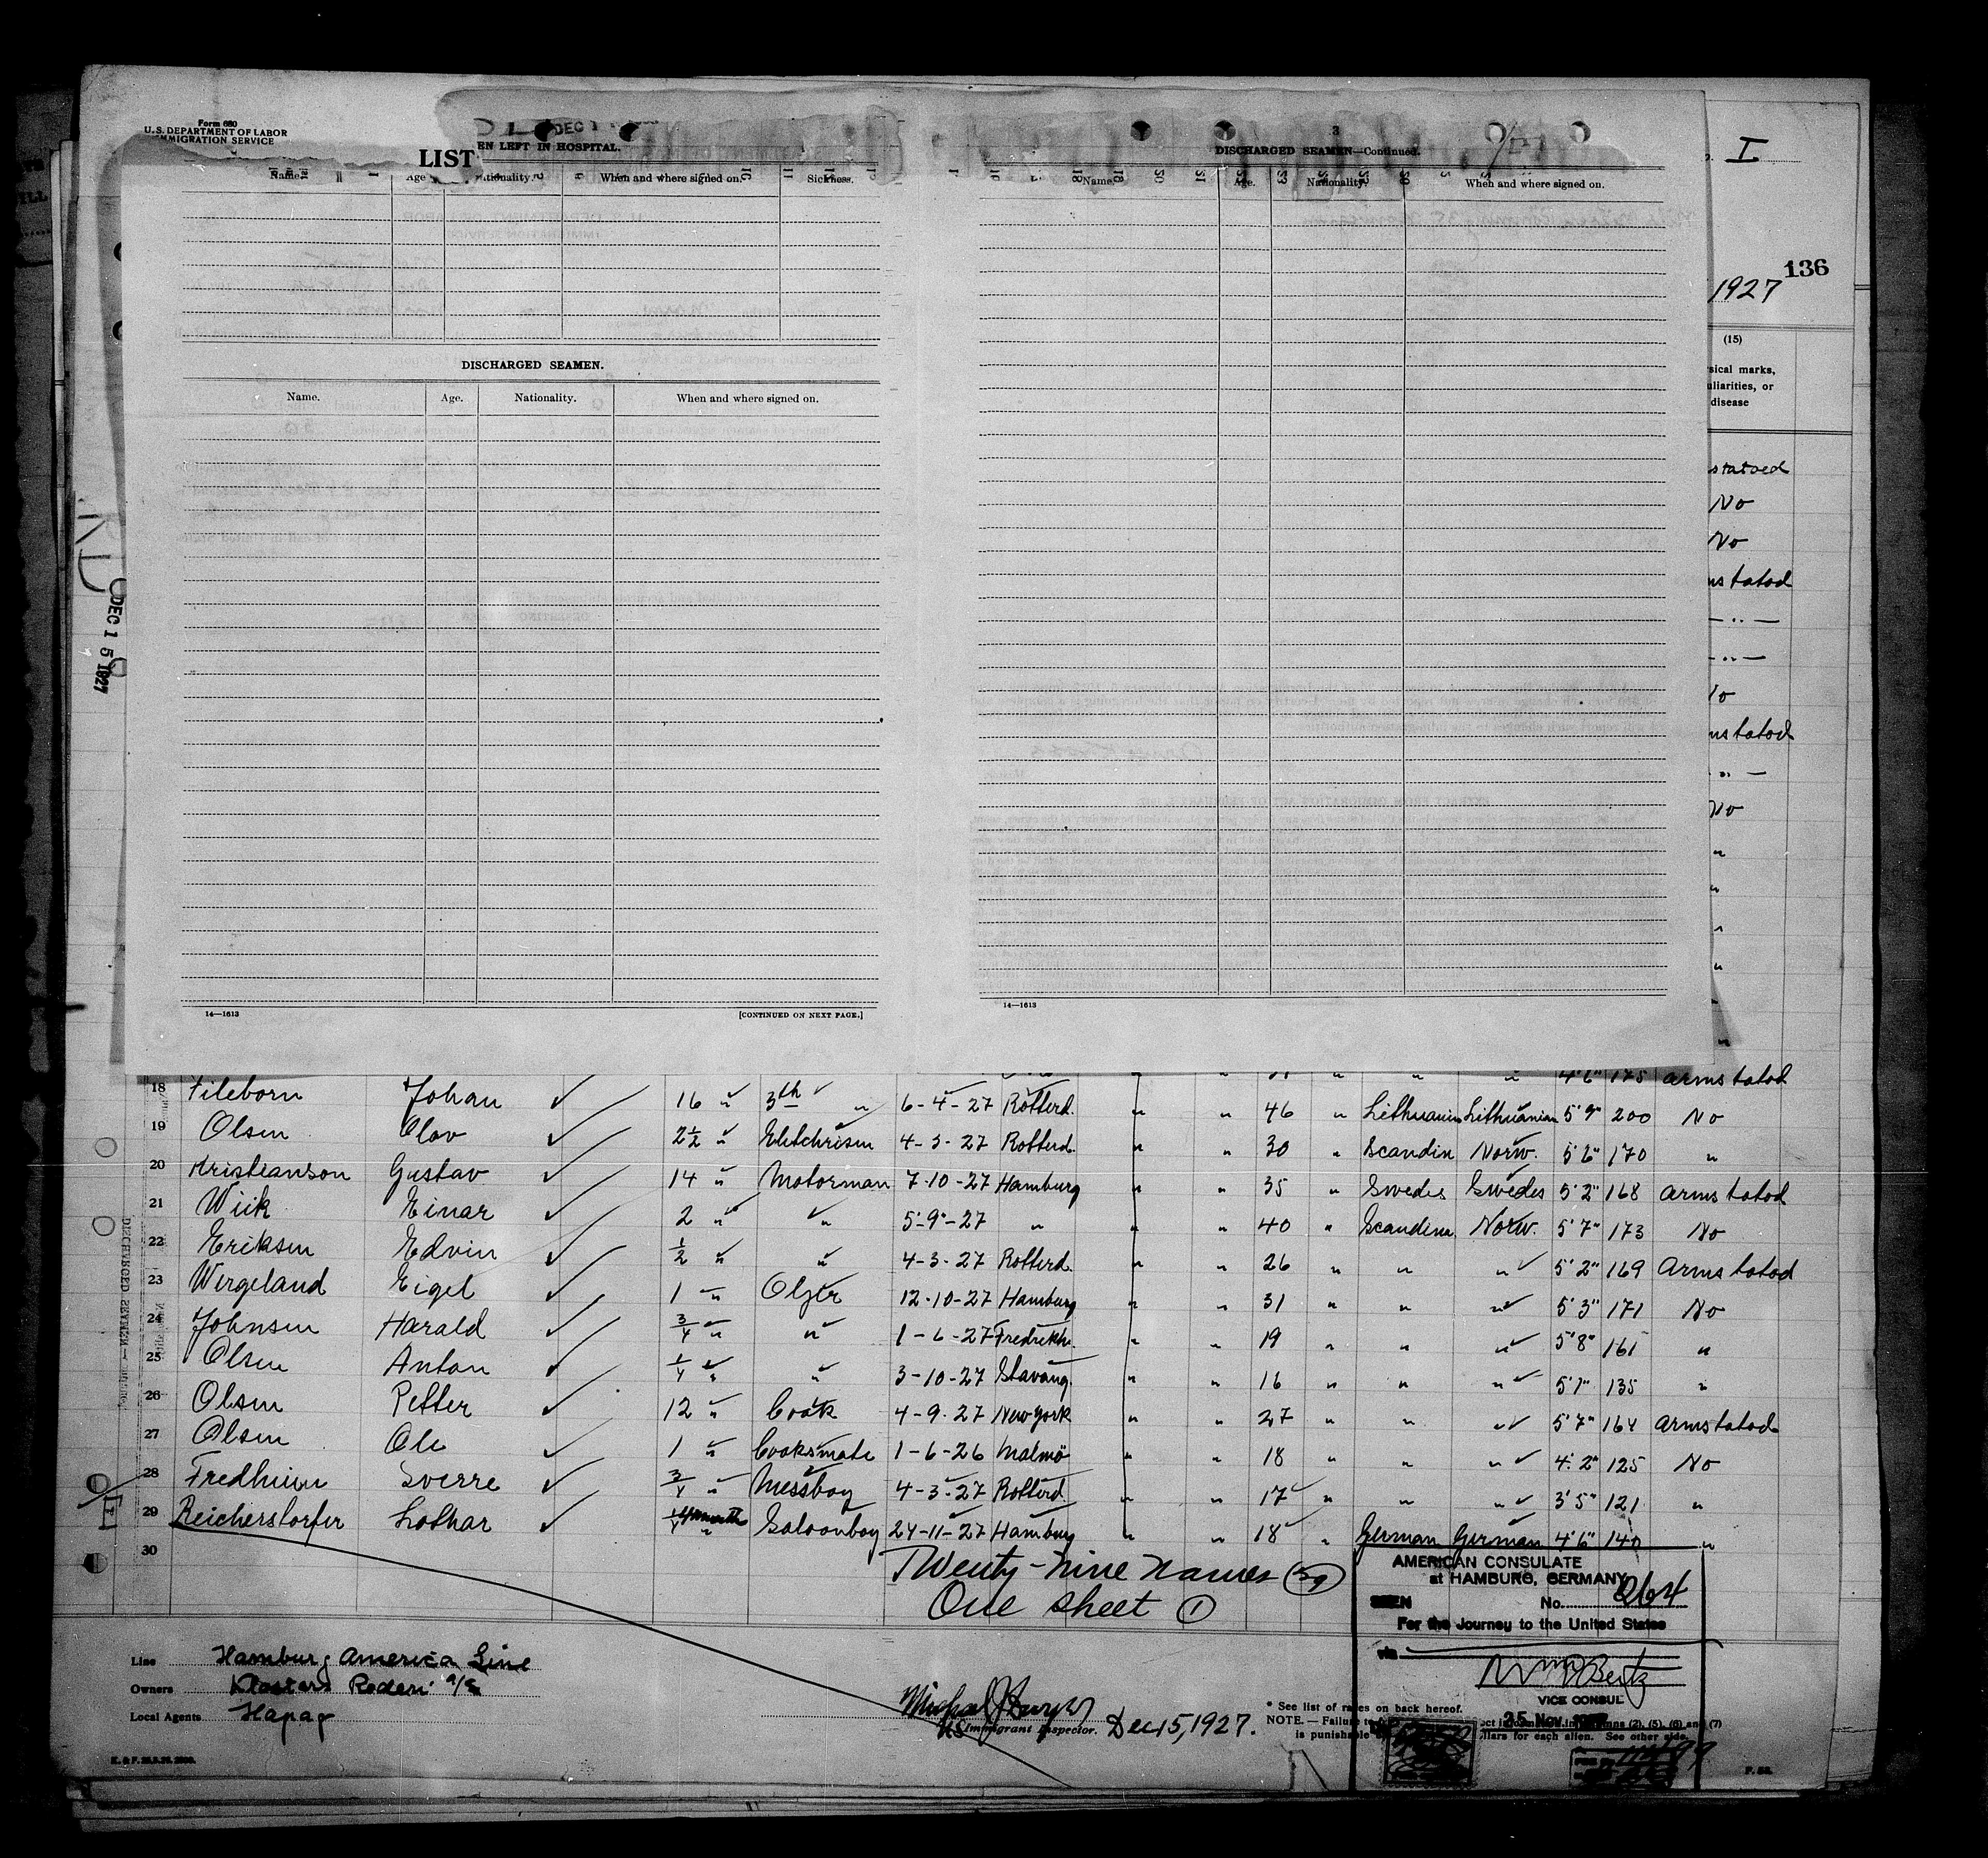 Form 680
U. S. DEPARTMENT OF LABOR
IMMIGRATION SERVICE
LIST
DEC 1
EN LEFT IN HOSPITAL.
Name. Age Nationality. When and where signed on. Sickness.
DISCHARGED SEAMEN.
Name. Age. Nationality. When and where signed on.
14—1613 [CONTINUED ON NEXT PAGE.]
3
DISCHARGED SEAMEN—Continued.
Name. Age. Nationality. When and where signed on.
14—1613
I
136
1927
(15)
sical marks,
uliarities, or
disease
statoed
No
No
ms tatod
— .. —
— .. —
No
ms tatod
— .. —
No
DEC 15 1927
4'6" 175 arms tatod
18 Fileborn Johan ✓ 16 " 3th " 6-4-27 Rotterd. " " 46 " Lithuanian Lithuanian 5'9" 200 No
19 Olsen Olav ✓ 2½ " Eletchrisen 4-3-27 Rotterd. " " 30 " Scandin Norw. 5'6" 170 "
20 Kristianson Gustav ✓ 14 " Motorman 7-10-27 Hamburg " " 35 " Swedes Swedes 5'2" 168 arms tatod
21 Wiik Einar ✓ 2 " " 5-9-27 " " " 40 " Scandina Norw. 5'7" 173 No
22 Eriksen Edvin ✓ ½ " " 4-3-27 Rotterd. " " 26 " " " 5'2" 169 Arms tatod
23 Wergeland Eigel ✓ 1 " Olger 12-10-27 Hamburg " " 31 " " " 5'3" 171 No
24 Johnsen Harald ✓ ¾ " " 1-6-27 Fredrikh. " " 19 " " " 5'8" 161 "
25 Olsen Anton ✓ ¼ " " 3-10-27 Stavang. " " 16 " " " 5'1" 135 "
26 Olsen Petter ✓ 12 " Cook 4-9-27 New York " " 27 " " " 5'7" 164 arms tatod
27 Olsen Ole ✓ 1 " Cooksmate 1-6-26 Malmö " " 18 " " " 4'2" 125 No
28 Fredhium Sverre ✓ ¾ " Messboy 4-3-27 Rotterd. " " 17 " " " 3'5" 121 "
29 Reicherstorfer Lothar ✓ ¼ " Saloonboy 24-11-27 Hamburg " " 18 " German German 4'6" 140 "
30
Twenty-nine names (29)
One sheet (1)
AMERICAN CONSULATE
at HAMBURG, GERMANY
SEEN No.
For the Journey to the United States
via
VICE CONSUL
25 Nov. 1927
Line Hamburg America Line
Owners Klosters Rederi a/s
Local Agents Hapag
Immigrant Inspector. Dec 15, 1927.
* See list of races on back hereof.
NOTE.—Failure to
is punishable
ct information in columns (2), (5), (6) and (7)
llars for each alien. See other side.